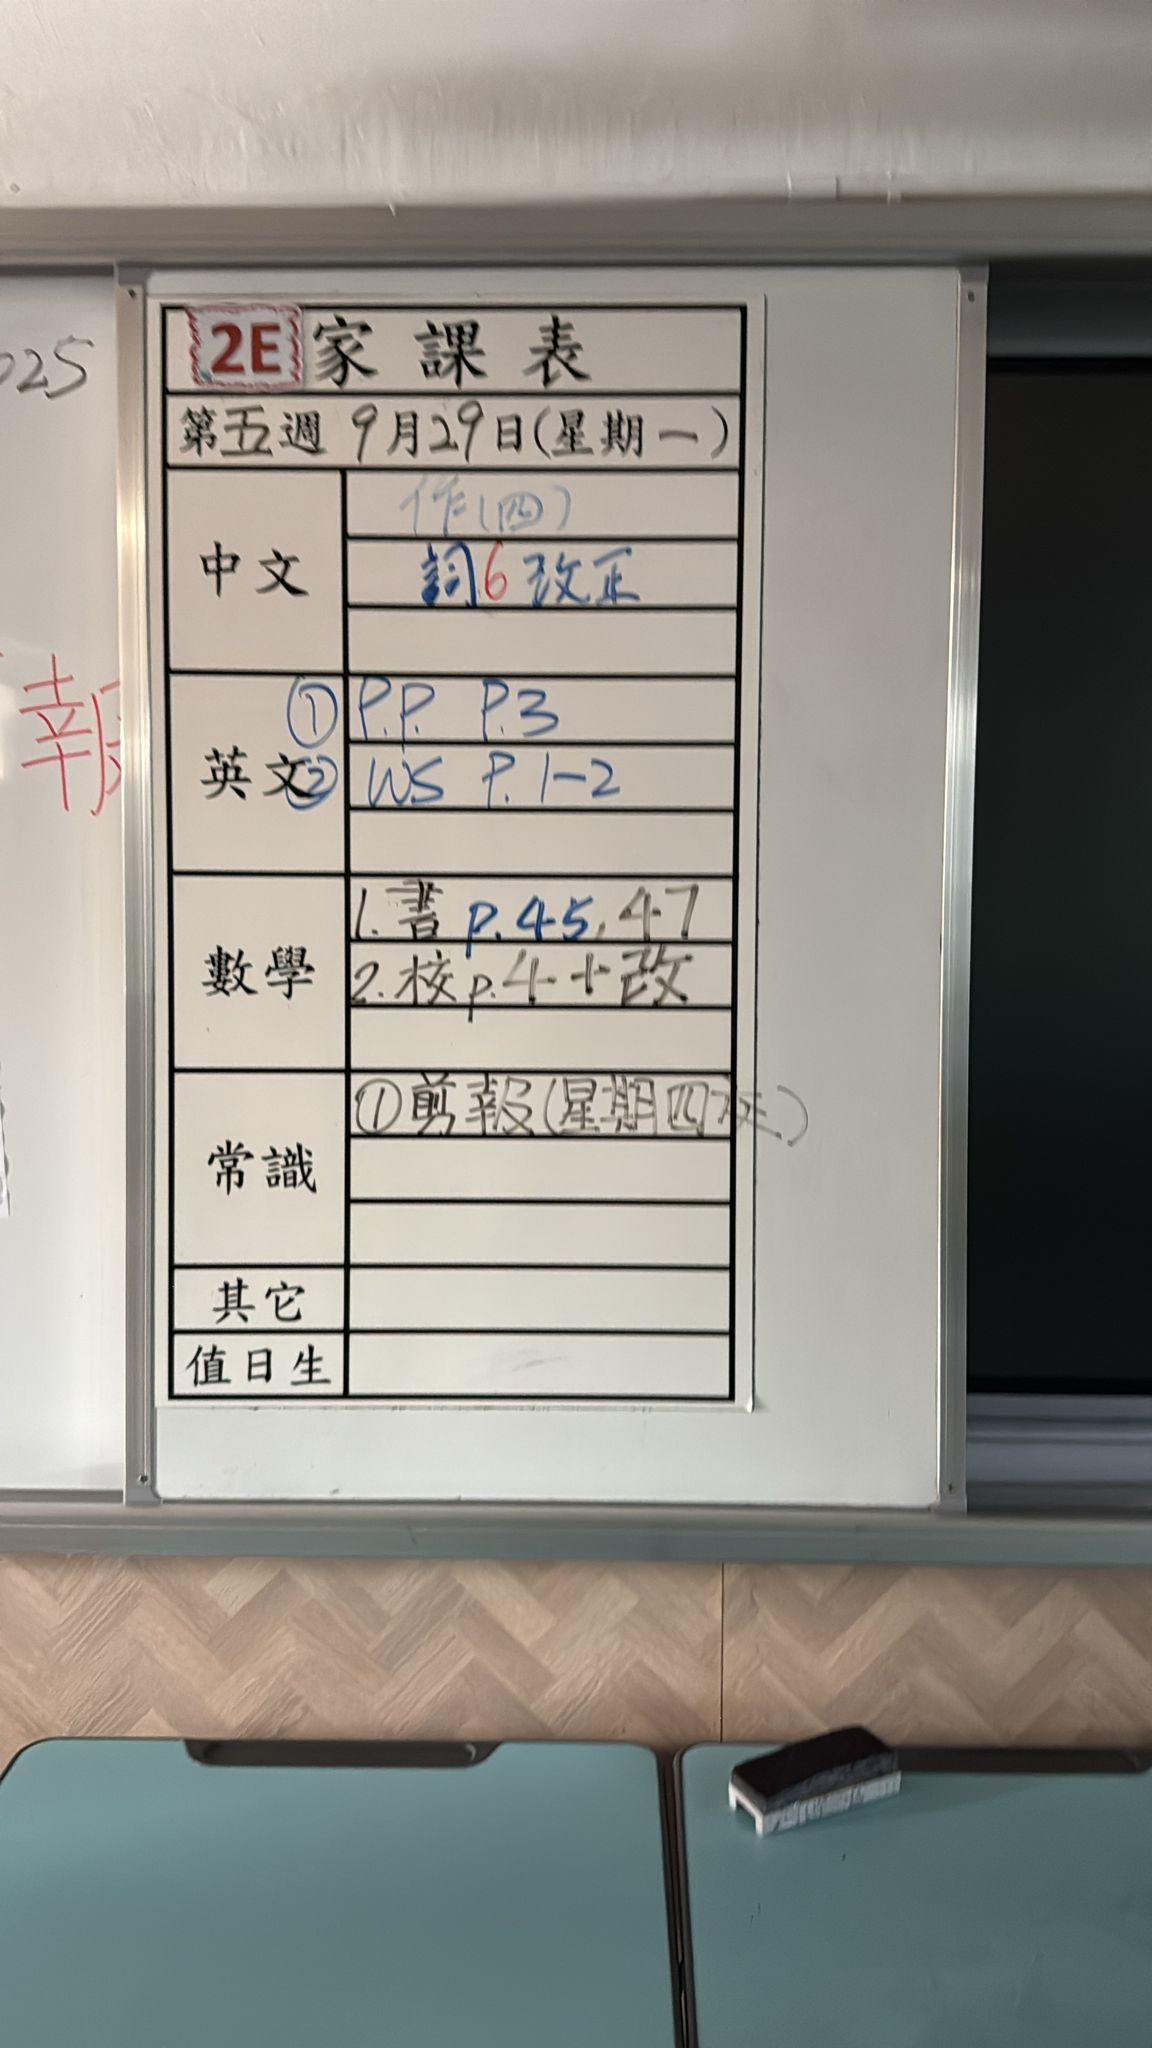 025
報
2E 家課表
第五週 9月29日(星期一)
中文
作(四)
詞6 改正
英文
① P.P. P.3
② WS P.1-2
數學
1. 書 p.45, 47
2. 校 p.4+改
常識
① 剪報(星期四交)
其它
值日生